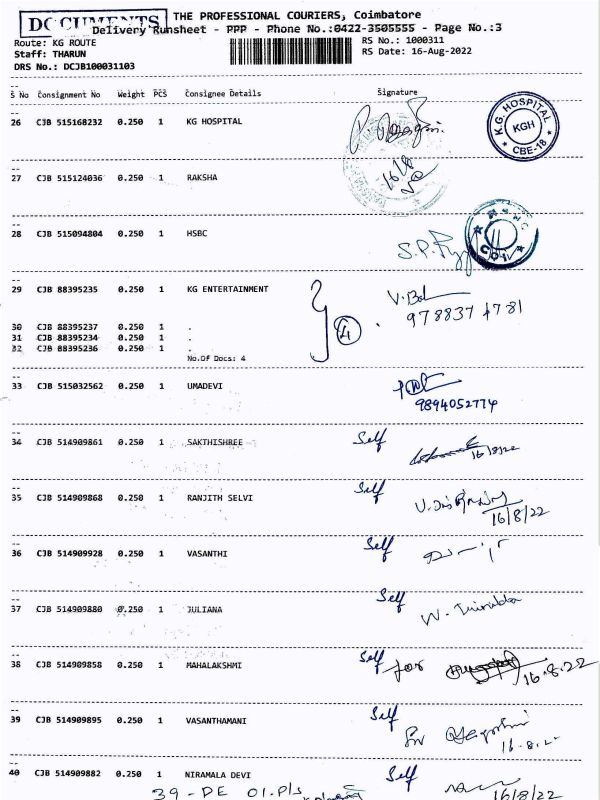 DOCUMENTS
THE PROFESSIONAL COURIERS, Coimbatore
Delivery Runsheet - PPP - Phone No.:0422-3505555 - Page No.:3
Route: KG ROUTE
RS No.: 1000311
Staff: THARUN
RS Date: 16-Aug-2022
DRS No.: DCJB100031103
S No Consignment No Weight PCS Consignee Details Signature
26 CJB 515168232 0.250 1 KG HOSPITAL
K.G. HOSPITAL
KGH
CBE-18
16/8
27 CJB 515124036 0.250 1 RAKSHA
28 CJB 515094804 0.250 1 HSBC
29 CJB 88395235 0.250 1 KG ENTERTAINMENT
30 CJB 88395237 0.250 1 .
31 CJB 88395234 0.250 1 .
32 CJB 88395236 0.250 1 .
No.Of Docs: 4
4
33 CJB 515032562 0.250 1 UMADEVI
9894052774
34 CJB 514909861 0.250 1 SAKTHISHREE Self
16/8/22
35 CJB 514909868 0.250 1 RANJITH SELVI Self
16/8/22
36 CJB 514909928 0.250 1 VASANTHI Self
37 CJB 514909880 0.250 1 JULIANA Self
38 CJB 514909858 0.250 1 MAHALAKSHMI Self for
16.8.22
39 CJB 514909895 0.250 1 VASANTHAMANI Self
40 CJB 514909882 0.250 1 NIRAMALA DEVI Self
39-DE 01.Pls
16/8/22